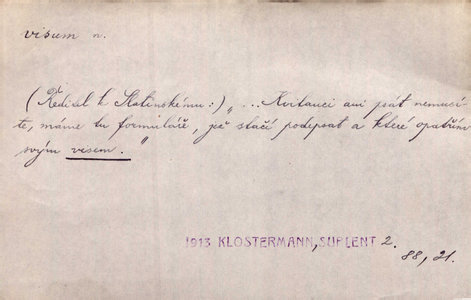 visum n.
(Ředitel k Slatinskému:) „... Kvitanci ani psát nemusí-
te, máme tu formuláře, jež stačí podepsat a které opatřím
svým visem."
1913 KLOSTERMANN, SUPLENT 2.
88, 21.